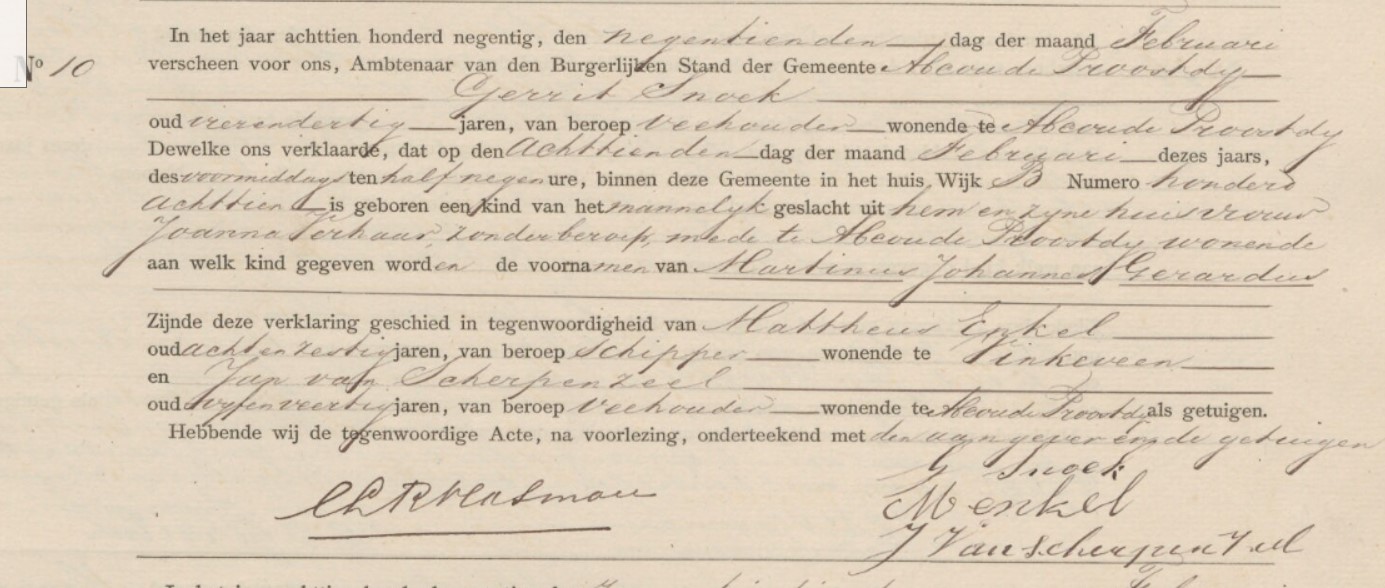 In het jaar achttien honderd negentig, den negentienden dag der maand Februari
No 10
verscheen voor ons, Ambtenaar van den Burgerlijken Stand der Gemeente Abcoude Proostdy
Gerrit Snoek
oud vierendertig jaren, van beroep veehouder wonende te Abcoude Proostdy
Dewelke ons verklaarde, dat op den Achttienden dag der maand Februari dezes jaars,
des voormiddags ten half negen ure, binnen deze Gemeente in het huis Wijk B Numero honderd
achttien is geboren een kind van het mannelyk geslacht uit hem en zyne huisvrouw
Joanna Verhaar, zonder beroep, mede te Abcoude Proostdy wonende
aan welk kind gegeven worden de voornamen van Martinus Johannes Gerardus
Zijnde deze verklaring geschied in tegenwoordigheid van Mattheus Enkel
oud achtenzestig jaren, van beroep schipper wonende te Vinkeveen
en Jan van Scherpenzeel
oud vyfenveertig jaren, van beroep veehouder wonende te Abcoude Proostdy als getuigen.
Hebbende wij de tegenwoordige Acte, na voorlezing, onderteekend met den aangever en de getuigen
G Snoek
M enkel
J Van scherpenzeel